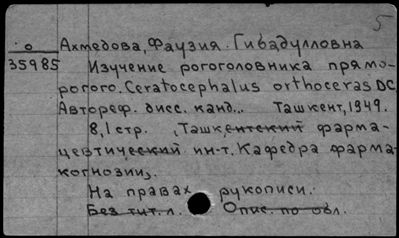 5
о Ахмедова, Фаузия Гибадулловна
35985 Изучение рогоголовника прямо-
рогого. Ceratocephalus orthoceras DC
Автореф. дисс. канд... Ташкент, 1949.
8,1 стр. , Ташкентский фарма-
цевтический ин-т. Кафедра фарма-
когнозии,.
На правах рукописи.
Без тит. л. Опис. по обл.